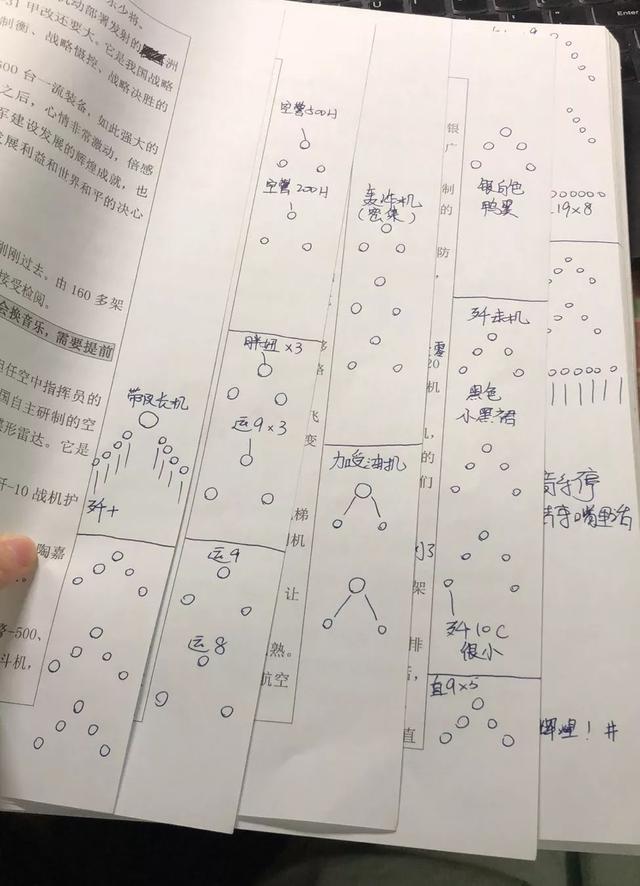 东少将、
31甲改还要大。它是我国战略
制衡、战略慑控、战略决胜的
600台一流装备，如此强大的
之后，心情非常激动，倍感
军建设发展的辉煌成就，也
发展利益和世界和平的决心
刚刚过去。由160多架
接受检阅。
会换音乐，需要提前
担任空中指挥员的
国自主研制的空
碟形雷达。它是
歼-10战机护
陶嘉
警-500、
斗机，
带队长机
歼十
空警500H
空警200H
胖妞×3
运9×3
运9
运8
飞
变
梯
机
让
熟。
航空
轰炸机
(密集)
加受油机
银
广
制
的
防
，
零
20
机
，
的
们
架
排
，
直
银白色
鸭翼
歼击机
黑色
小黑裙
歼10C
很小
直9×5
19×8
辉煌！#